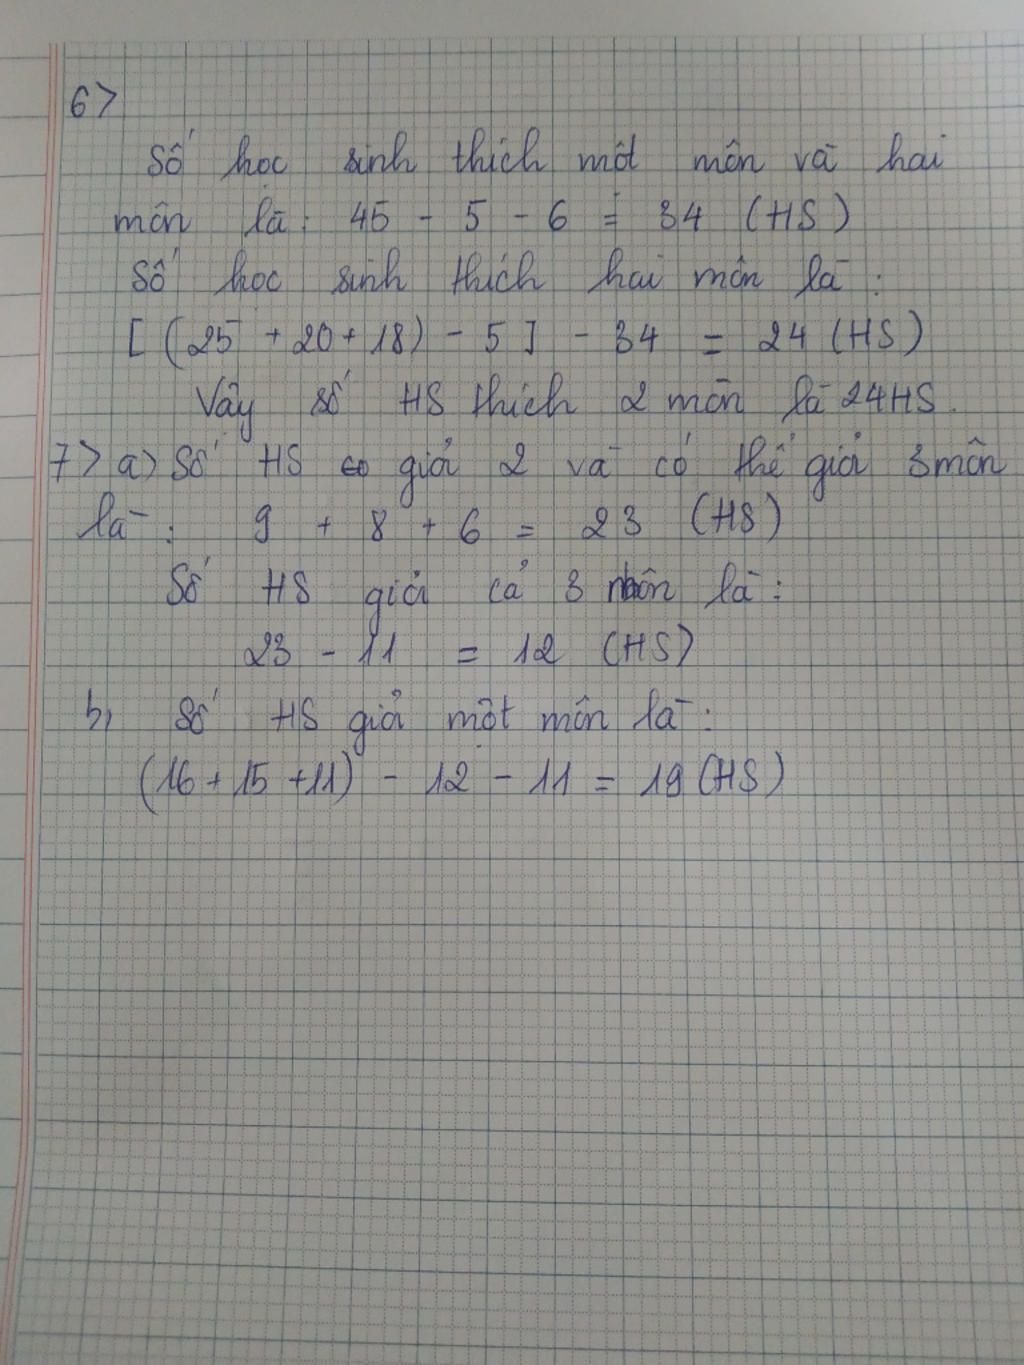 6>
Số học sinh thích một môn và hai
môn là: 45 - 5 - 6 = 34 (HS)
Số học sinh thích hai môn là:
[(25 + 20 + 18) - 5] - 34 = 24 (HS)
Vậy số HS thích 2 môn là 24HS.
7> a> Số HS giỏi 2 và có thể giỏi 3 môn
là: 9 + 8 + 6 = 23 (HS)
Số HS giỏi cả 3 môn là:
23 - 11 = 12 (HS)
b, Số HS giỏi một môn là:
(16 + 15 + 11) - 12 - 11 = 19 (HS)